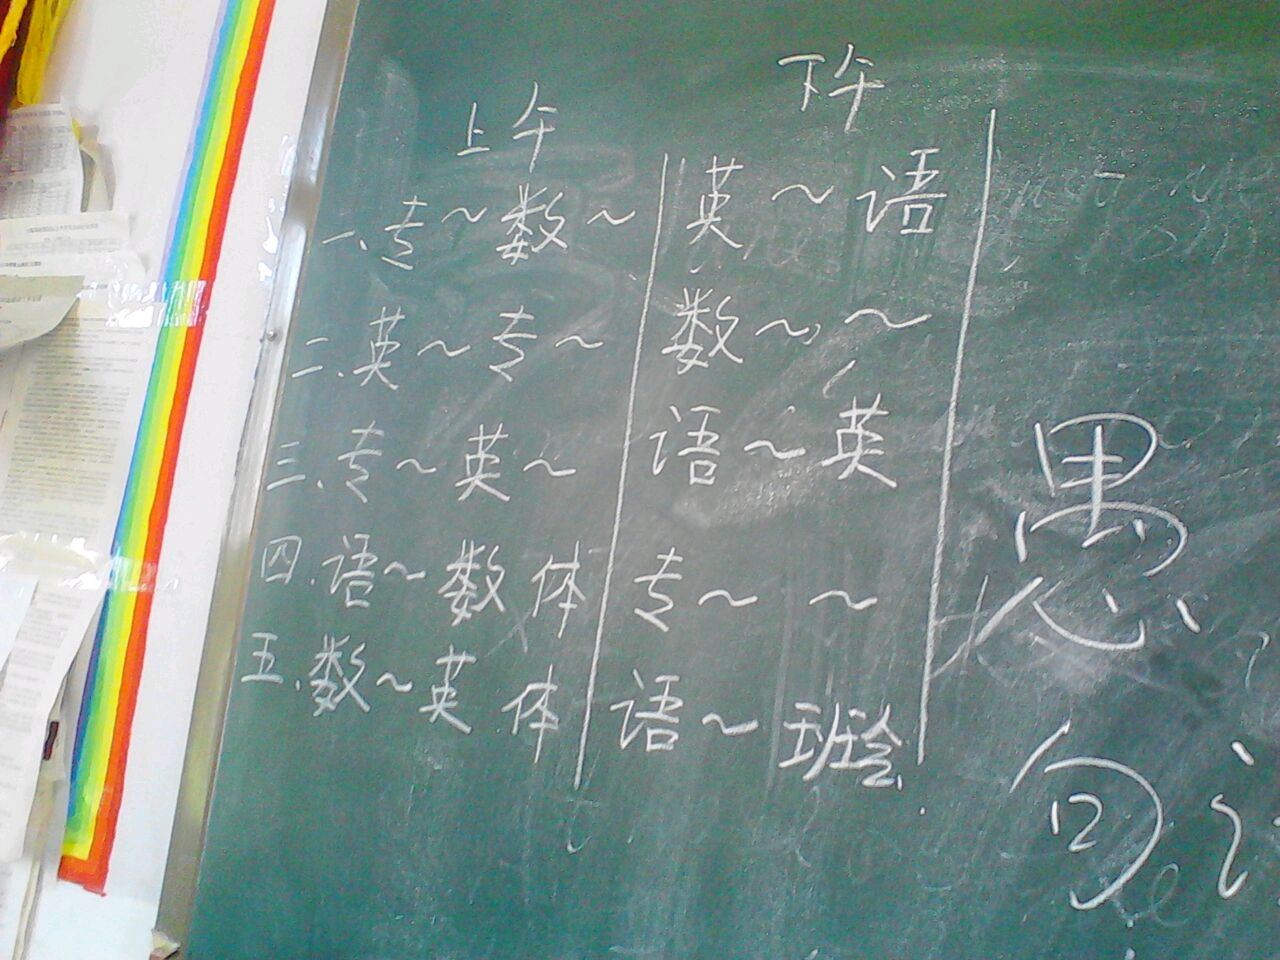 上午 下午
一、专~数~ 英~语
二、英~专~ 数~~
三、专~英~ 语~英
四、语~数体 专~~
五、数~英体 语~班会
句